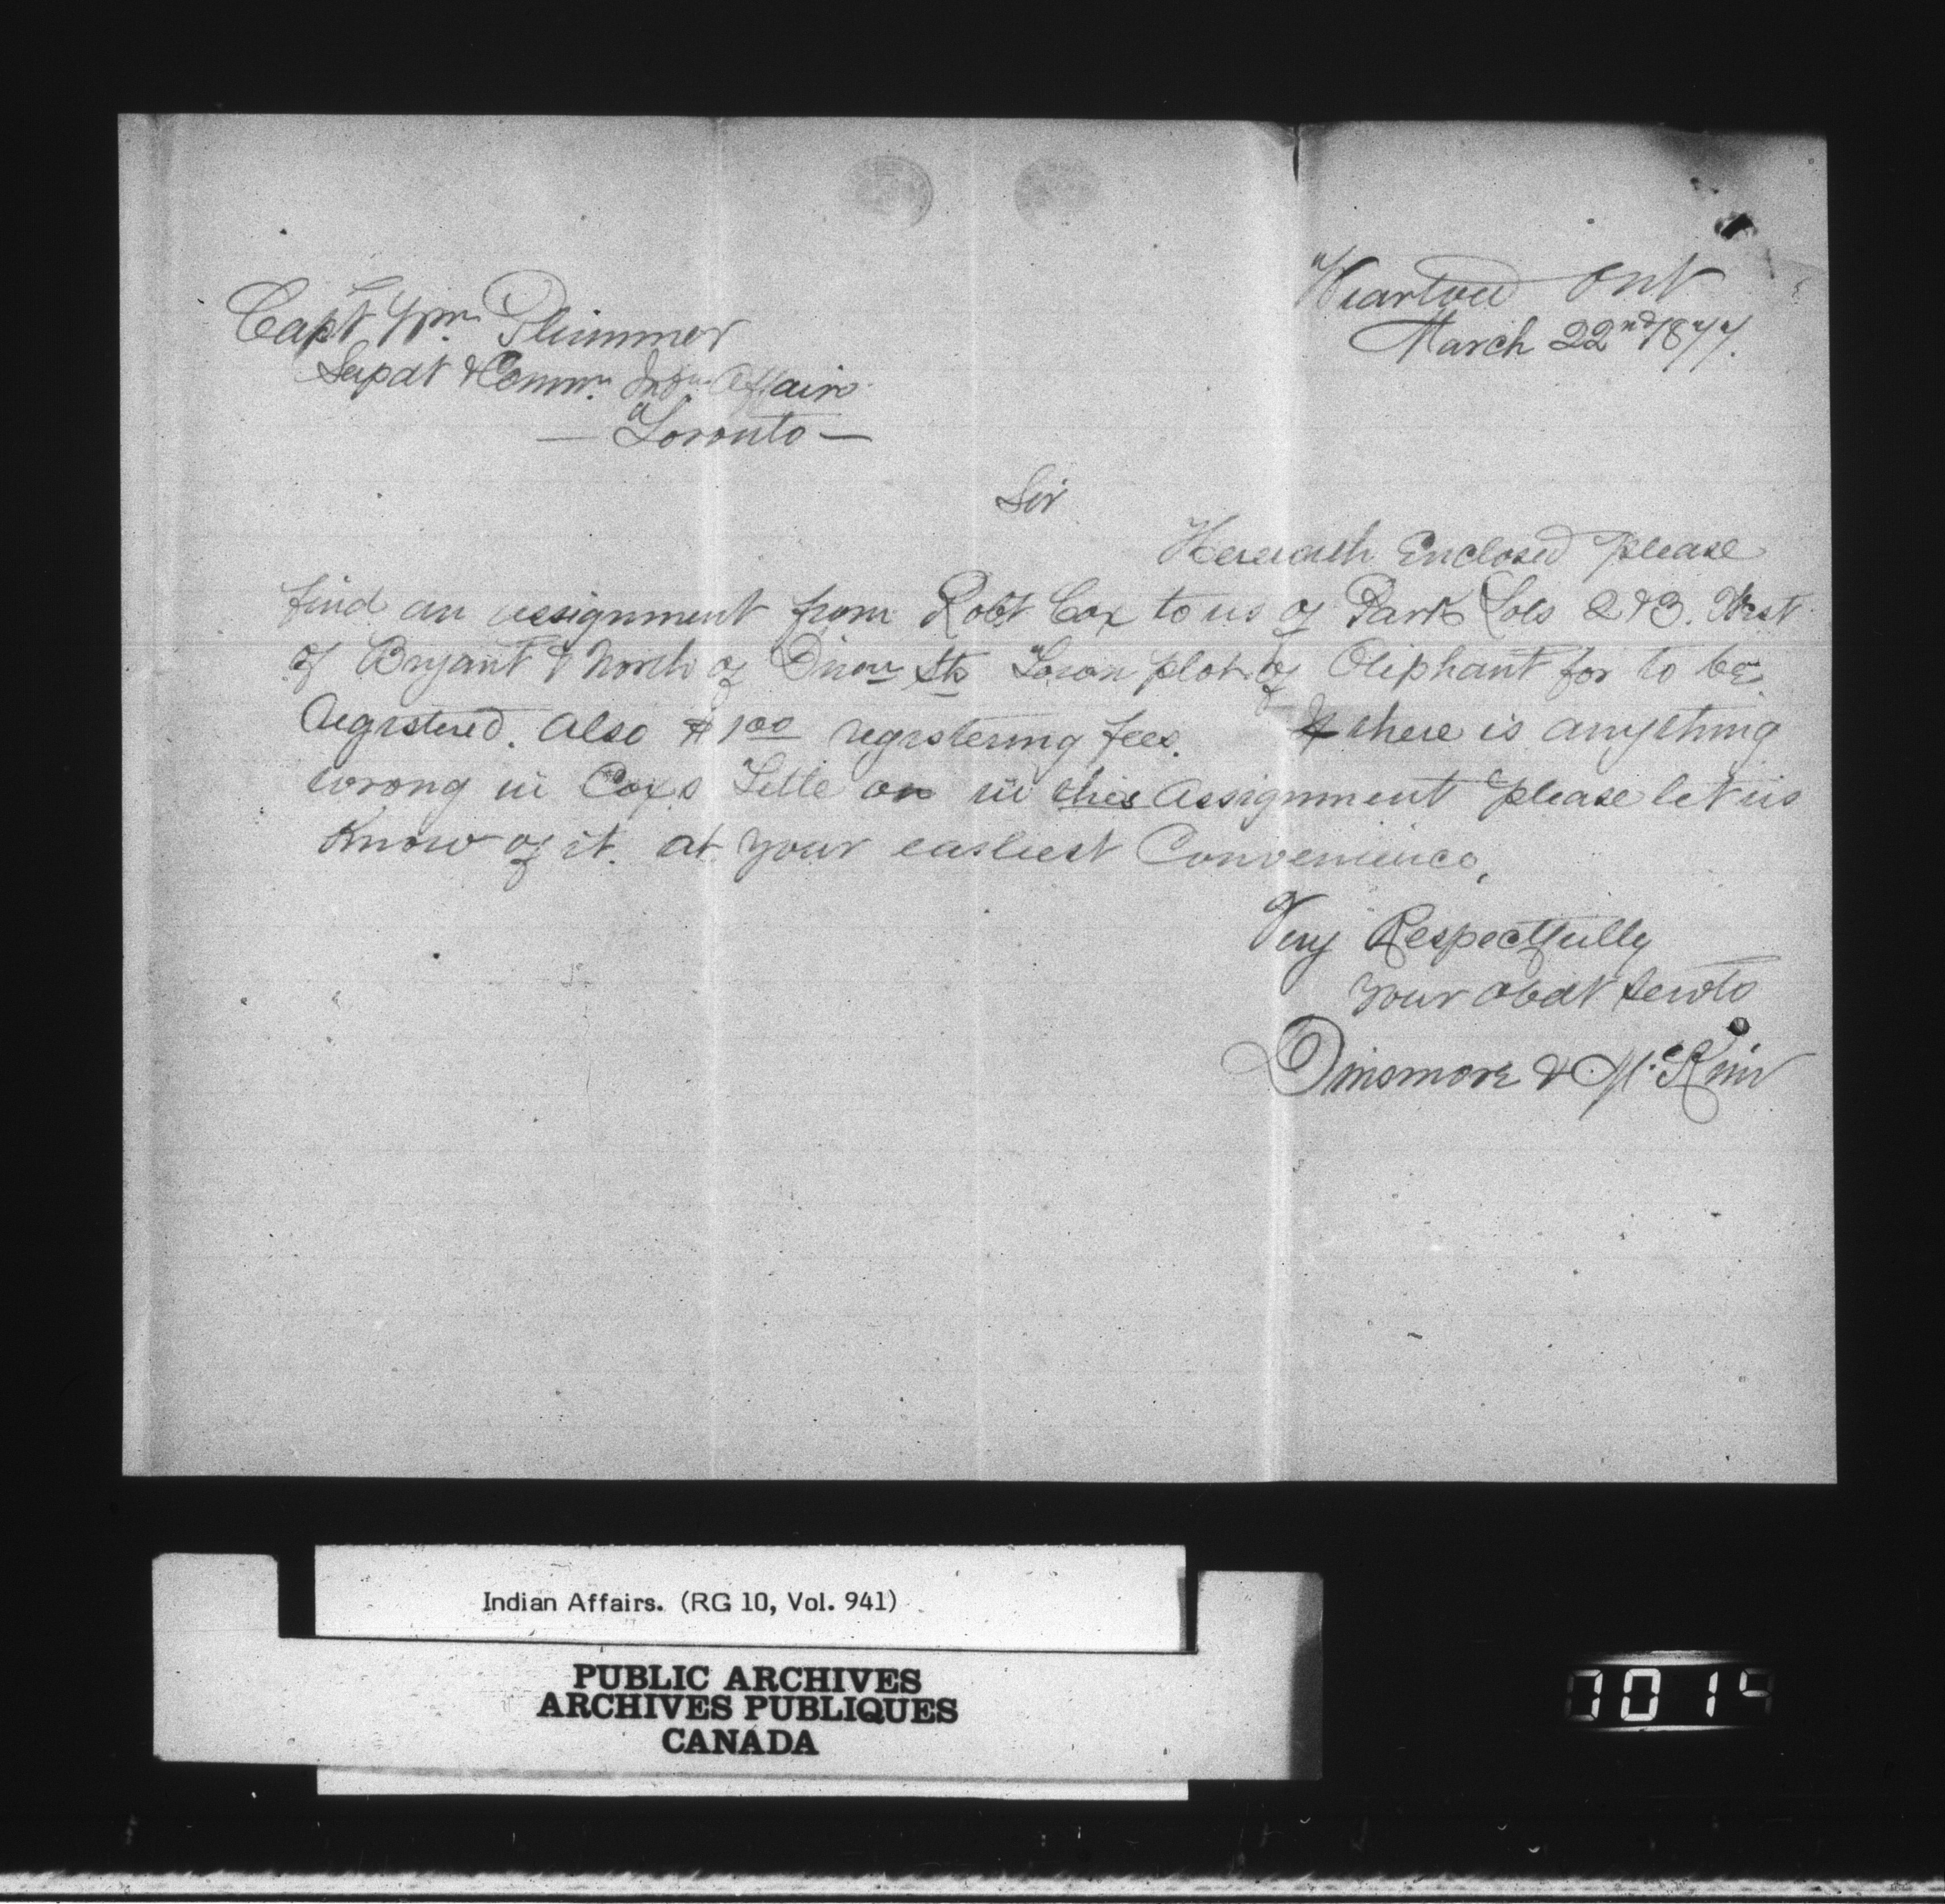 Wiarton Ont
March 22nd 1877.
Capt Wm. Plummer
Supdt & Commr. Indn Affairs
— Toronto —
Sir
Herewith Enclosed please
find an assignment from Robt Cox to us of Park Lots 2 & 3. West
of Bryant & North of Sts Town plot of Oliphant for to be
registered. Also $1 00 registering fees. If there is anything
wrong in Cox,s Title or in this Assignment please let us
Know of it. at your earliest Convenience,
Very Respectfully
Your obdt servts
Dinsmore & McKim
Indian Affairs. (RG 10, Vol. 941)
PUBLIC ARCHIVES
ARCHIVES PUBLIQUES
CANADA
1014